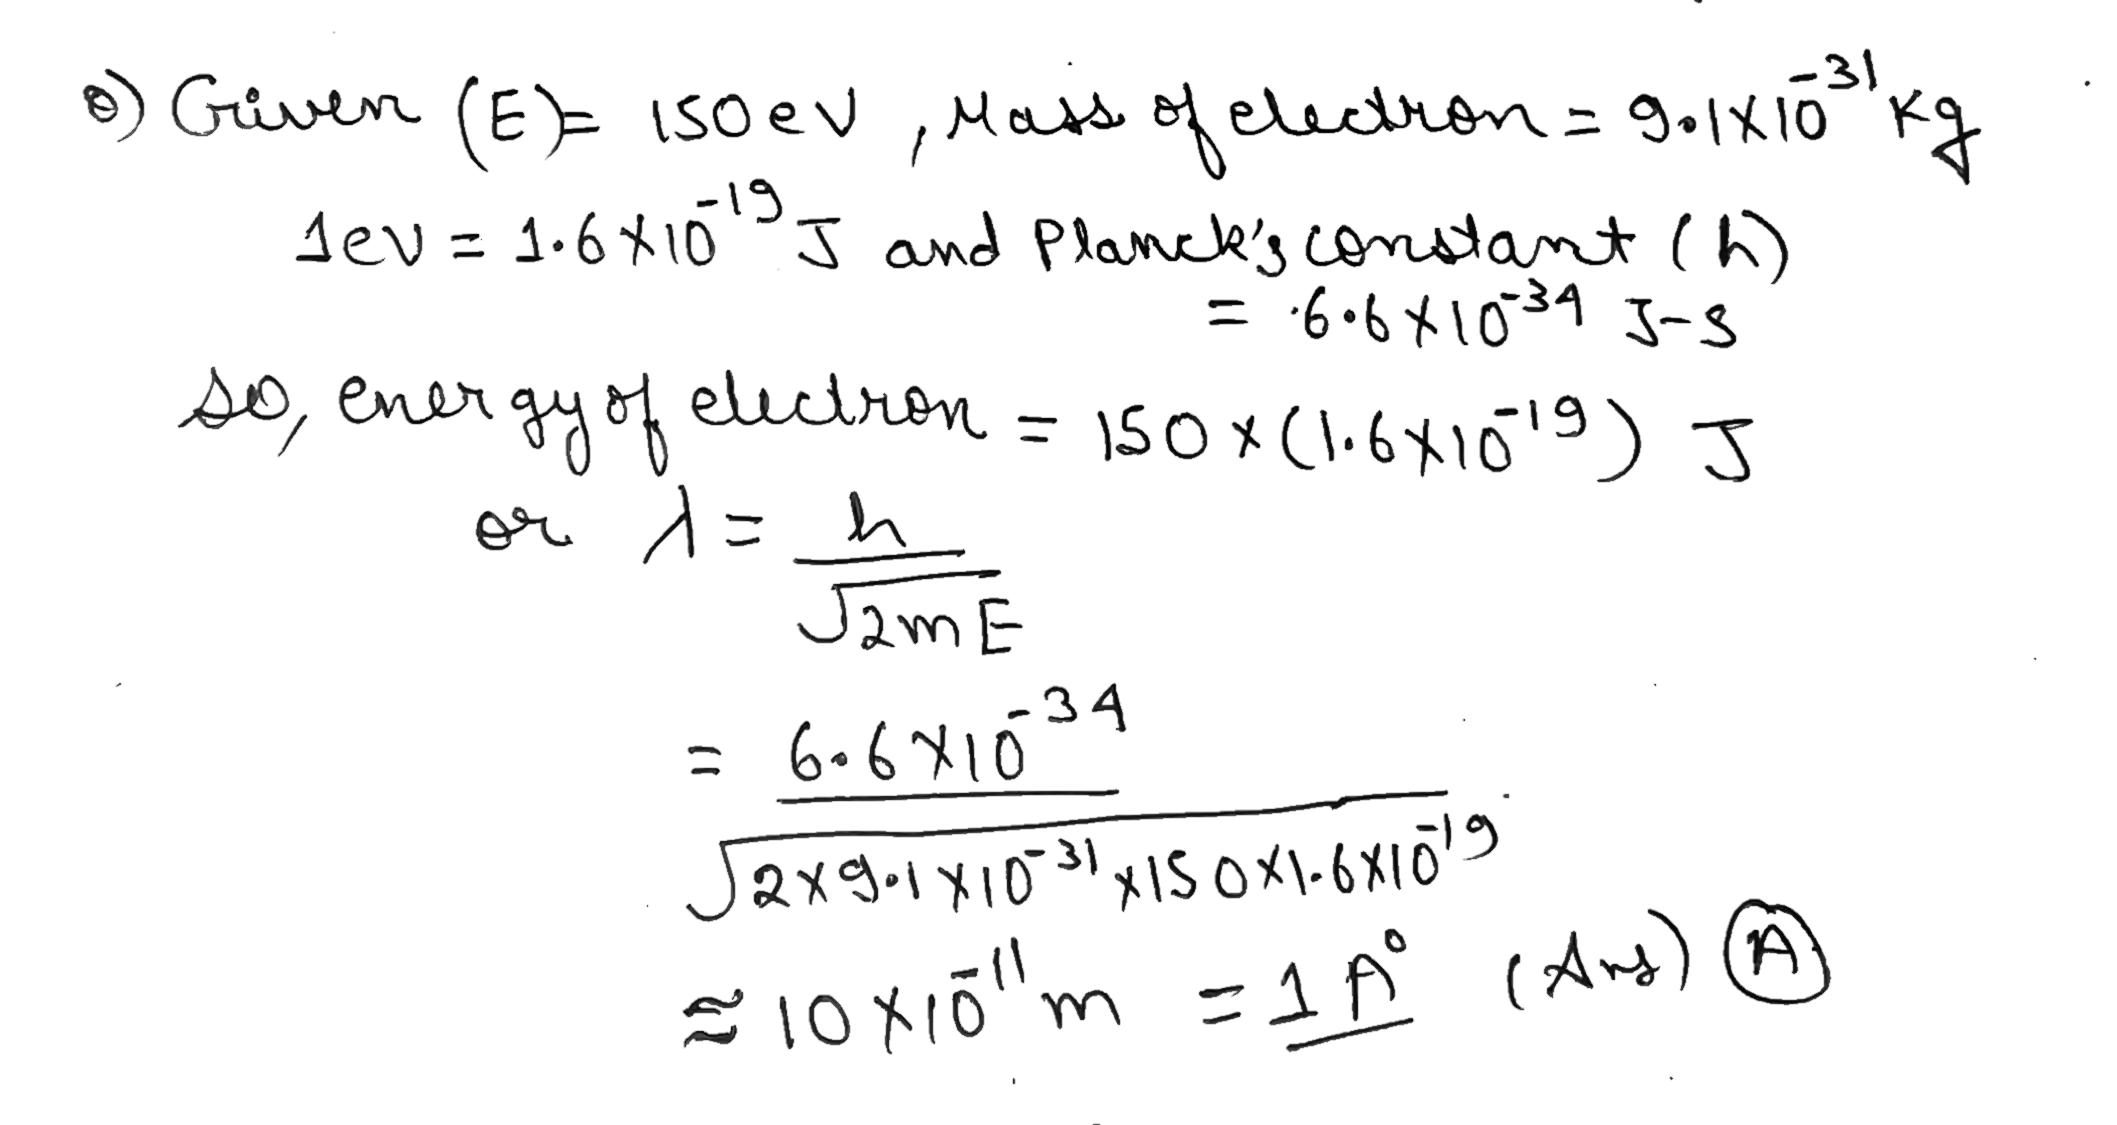 ०) Given (E) = 150 eV , Mass of electron = 9.1×10⁻³¹ Kg
1ev = 1.6×10⁻¹⁹ J and Planck's constant (h)
= 6.6×10⁻³⁴ J-s
so, energy of electron = 150×(1.6×10⁻¹⁹) J
or λ = h
√2mE
= 6.6×10⁻³⁴
√2×9.1×10⁻³¹×150×1.6×10⁻¹⁹
≈ 10×10⁻¹¹ m = 1 A° (Ans) A